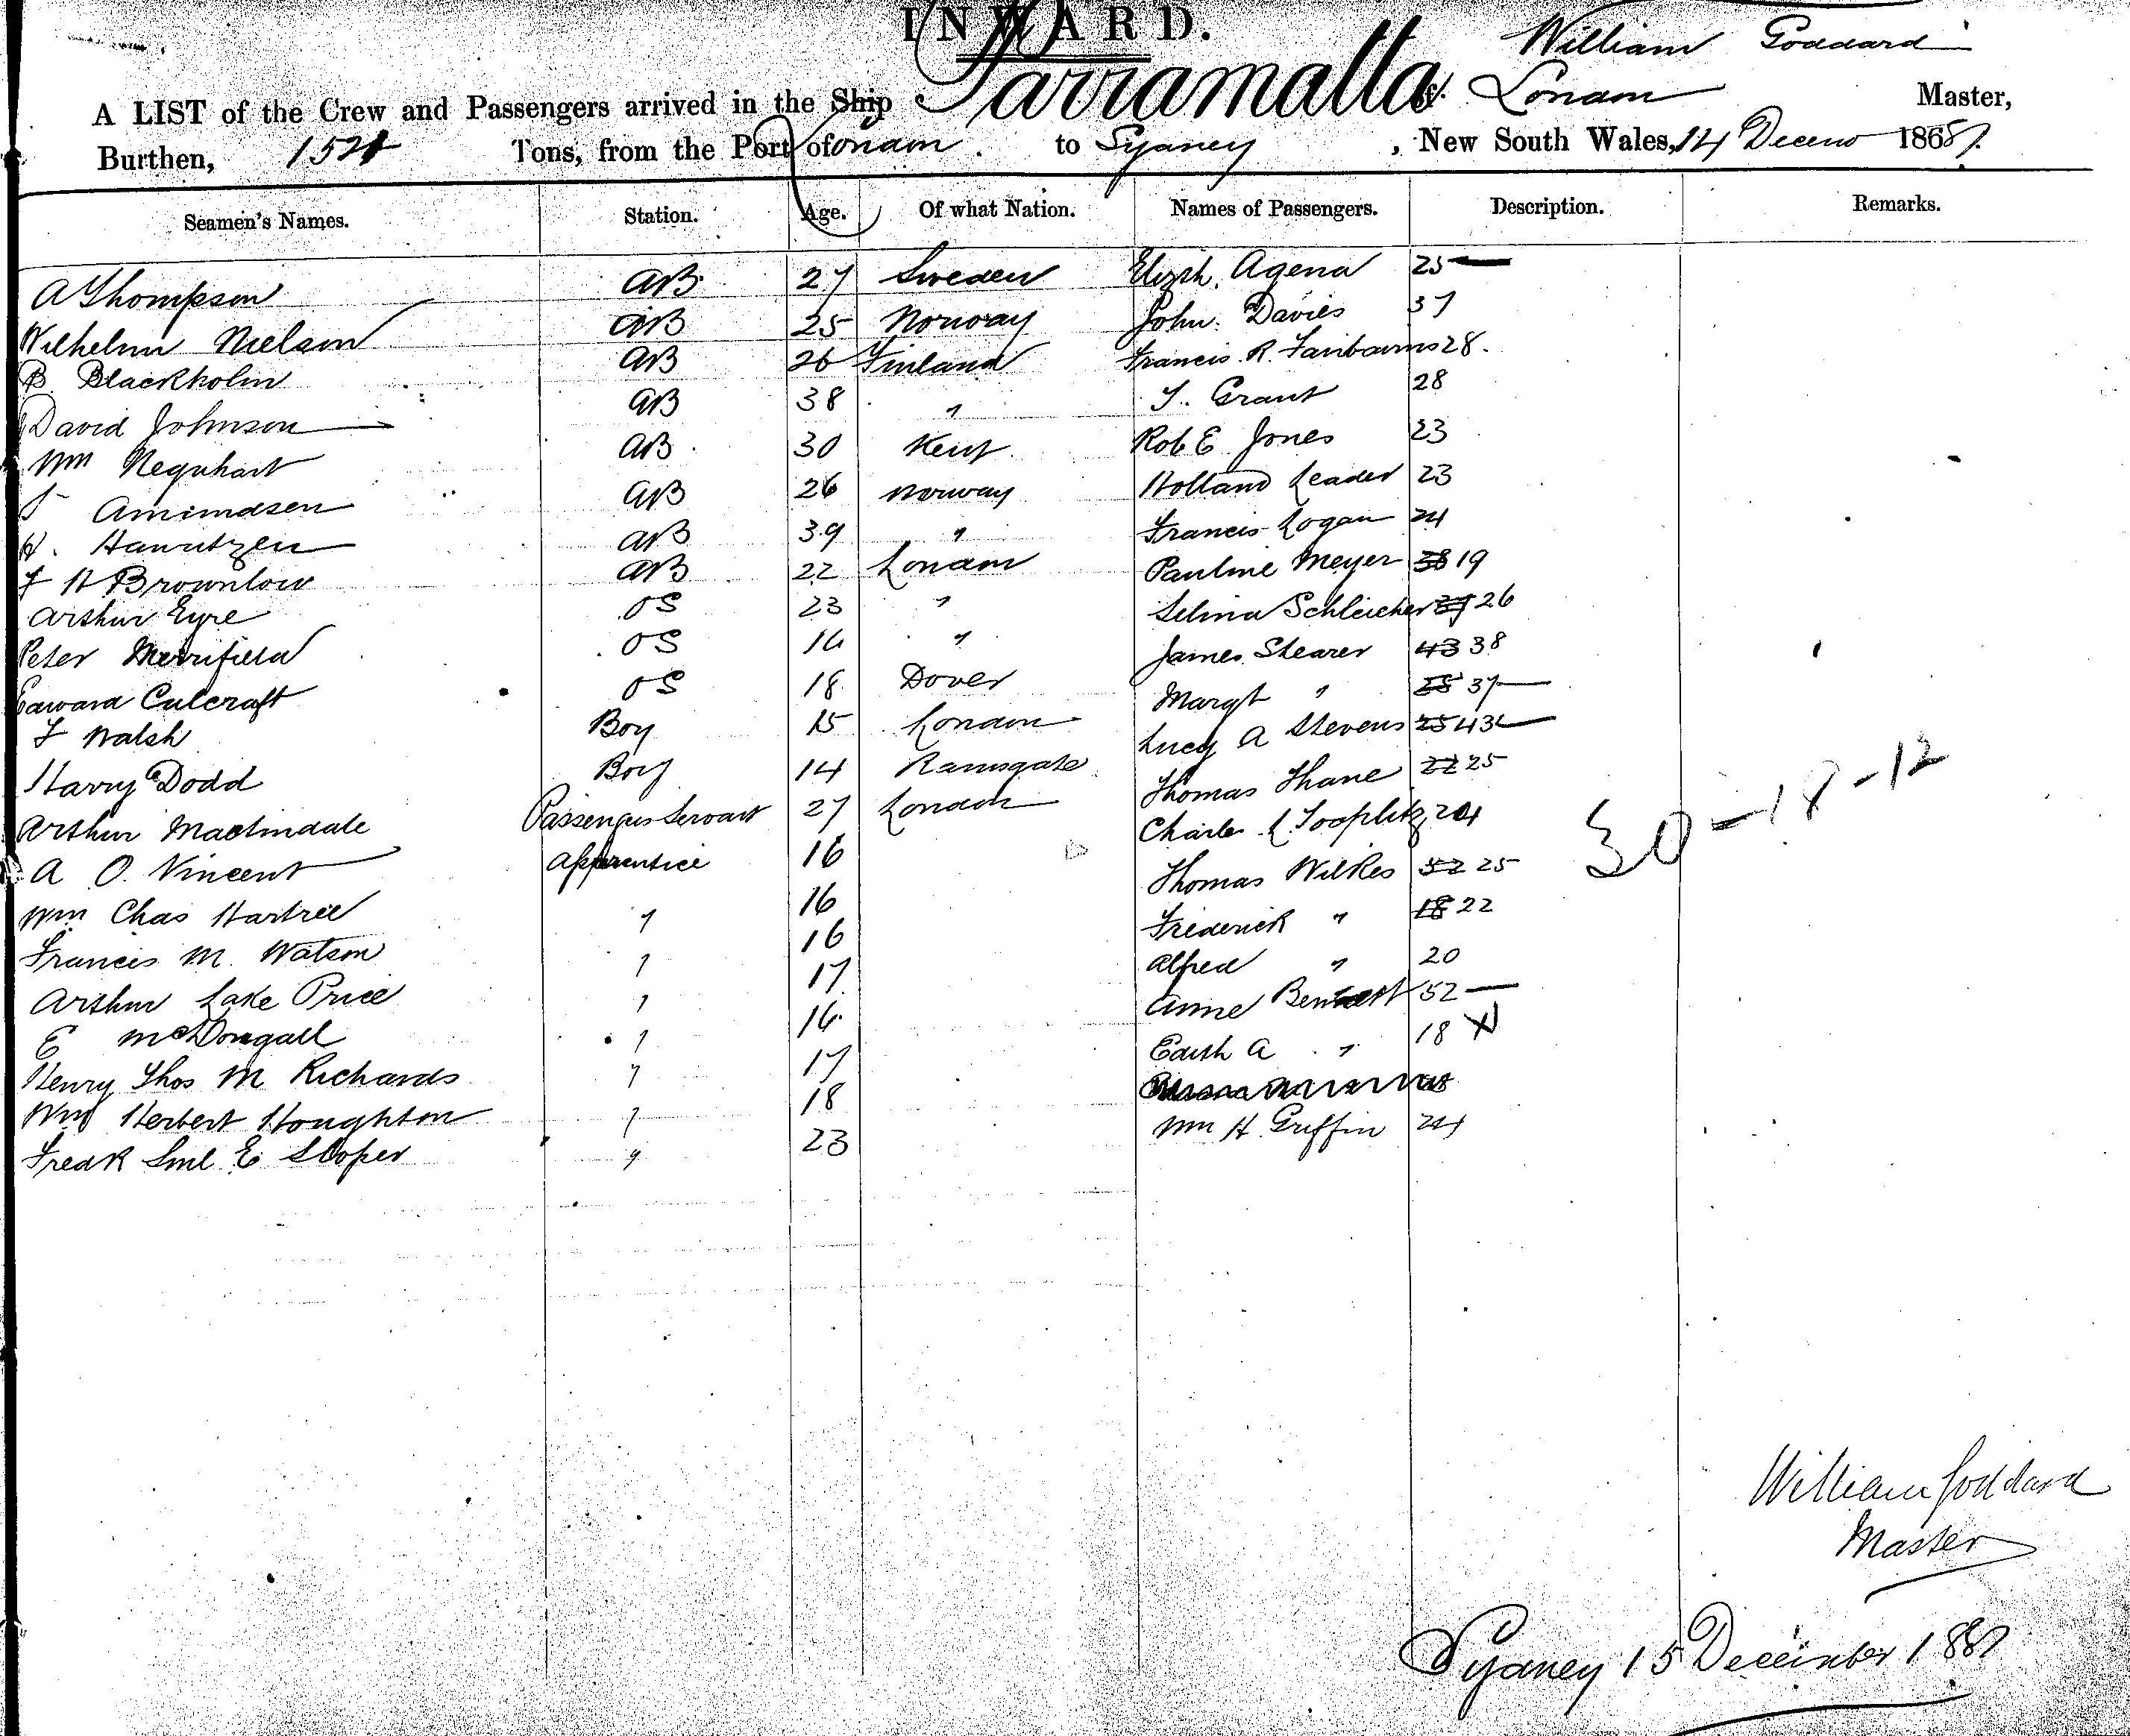 INWARD.
William Goddard
A LIST of the Crew and Passengers arrived in the Ship Parramatta of London Master,
Burthen, 1521 Tons, from the Port of London to Sydney, New South Wales, 14 Decem 1887
Seamen's Names. Station. Age. Of what Nation. Names of Passengers. Description. Remarks.
A Thompson AB 27 Sweden Elizth. Agena 25
Wilhelm Nielson AB 25 Norway John Davies 37
B. Blackholm AB 26 Finland Francis R. Fairbairns 28
David Johnson AB 38 " T. Grant 28
Wm Nequhart AB 30 Kent Rob E Jones 23
Amimdsen AB 26 Norway Holland Leader 23
H. Hanutzen AB 39 " Francis Logan 24
F H Brownlow AB 22 London Pauline Meyer 38 19
Arthur Eyre OS 23 " Selina Schleicher 26
Peter Merrifield OS 16 " James Shearer 43 38
Edward Culcraft OS 18 Dover Margt " 37
F Walsh Boy 15 London Lucy A Stevens 25 43
Harry Dodd Boy 14 Ramsgate Thomas Thane 22 25
Arthur Mactindale Passengers Servant 27 London Charles L. 24
A O. Vincent Apprentice 16 Thomas Wilkes 52 25
30-18-12
Wm Chas Hartree " 16 Frederick " 18 22
Francis M. Watson " 16 Alfred " 20
Arthur Lake Price " 17 Anne 52
E McDougall " 16 Edith A " 18 X
Henry Thos M Richards " 17
Wm Herbert Houghton " 18 Wm H. Griffin 24
Fredk Sml E Sloper " 23
William Goddard
Master
Sydney 15 December 1887